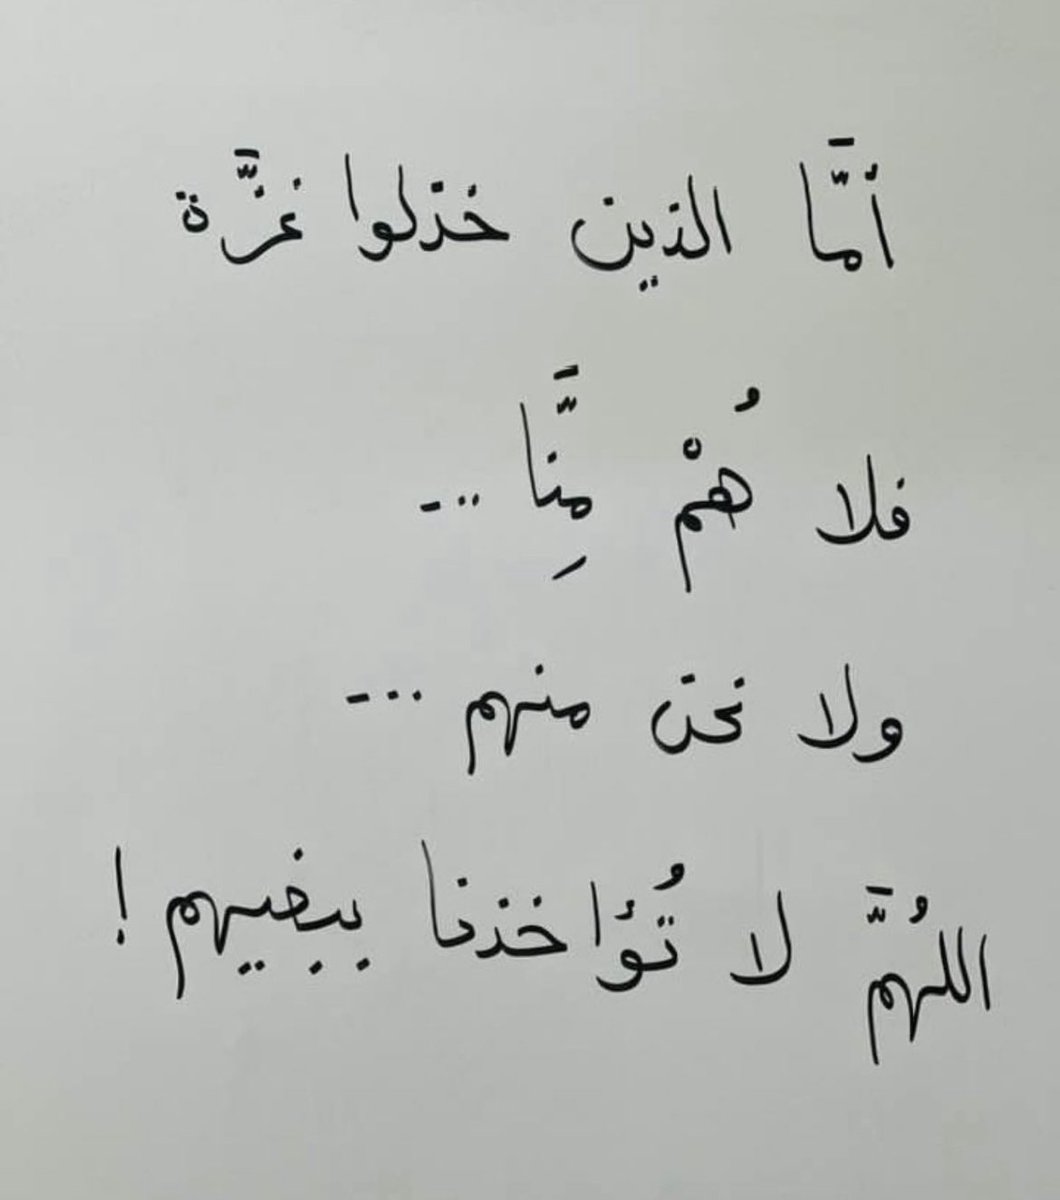 أمَّا الذين خذلوا غزَّة
فلا هُمْ مِنَّا ...
ولا نحن منهم ...
اللهُمَّ لا تُؤاخذنا ببغيهم !